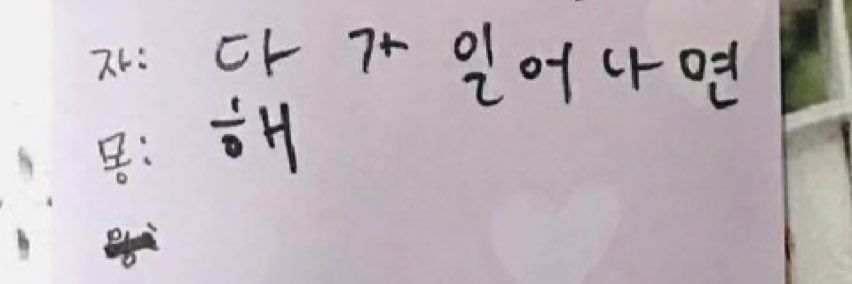 자: 다 가 일어나면
몽: 해